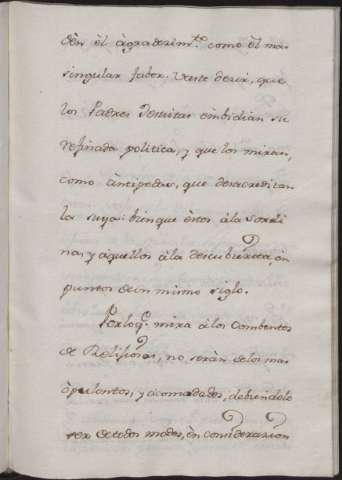 dèn èl àgradecim.to como èl mas
singular favor. Veste decir, que
los Padres Jesuitas èmbidian su
refinada politica, y que los miran,
como àntipodas, que desacreditan
la suya: bien que èstos à la sordi
na, y àquellos à la descubierta, èn
puntos de ùn mismo siglo.
Por lo q.e mira à los Combentos
de Religiosas, no seràn de los mas
òpulentos, y acomodados, debiendolo
ser de todos modos, èn consideracion